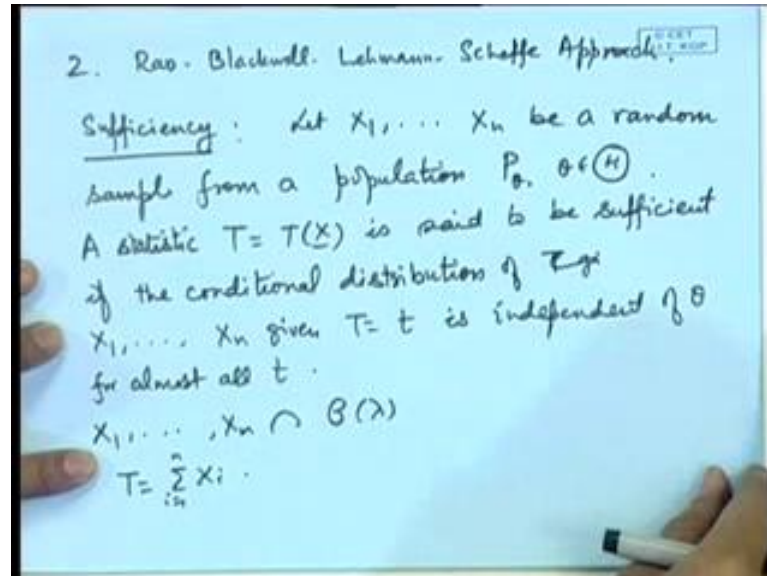 2. Rao- Blackwell- Lehmann- Scheffe Approach.
Sufficiency : Let X1, ... Xn be a random
sample from a population Pθ, θ∈Ⓗ.
A statistic T = T(X) is said to be sufficient
if the conditional distribution of
X1, ..., Xn given T= t is independent of θ
for almost all t.
X1, ..., Xn ∩ (λ)
T= ∑ Xi .